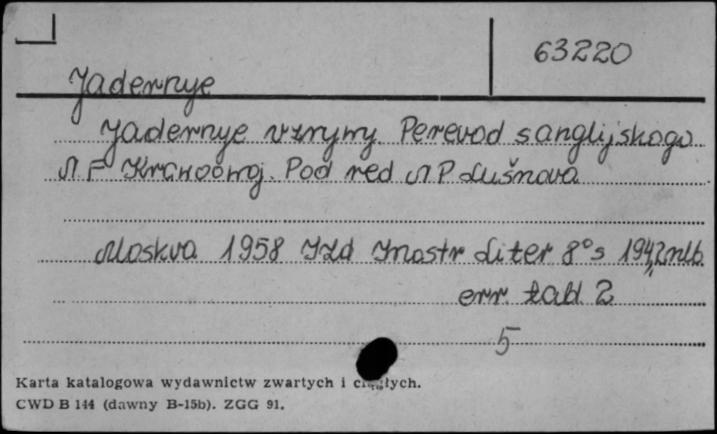 63220
Jadernye
Jadernye vzryvy. Perevod s anglijskogo
F Pod red P Lušnova
Moskva 1958 Izd Inostr Liter 8° s 194, 2 nlb.
err. tabl 2
5
Karta katalogowa wydawnictw zwartych i ciągłych.
CWD B 144 (dawny B-15b). ZGG 91.